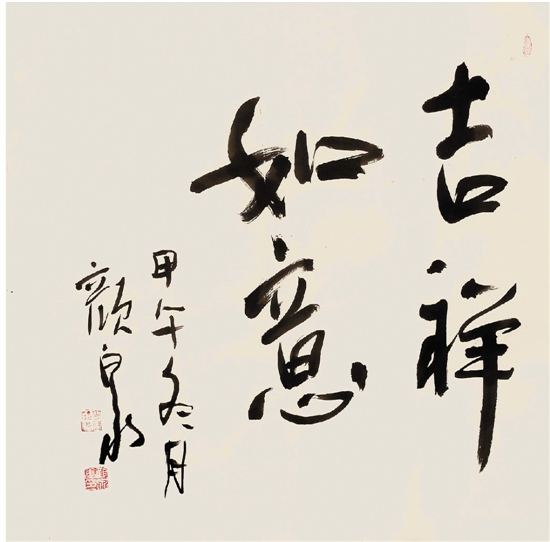 吉祥
如意
甲午冬月
顏泉